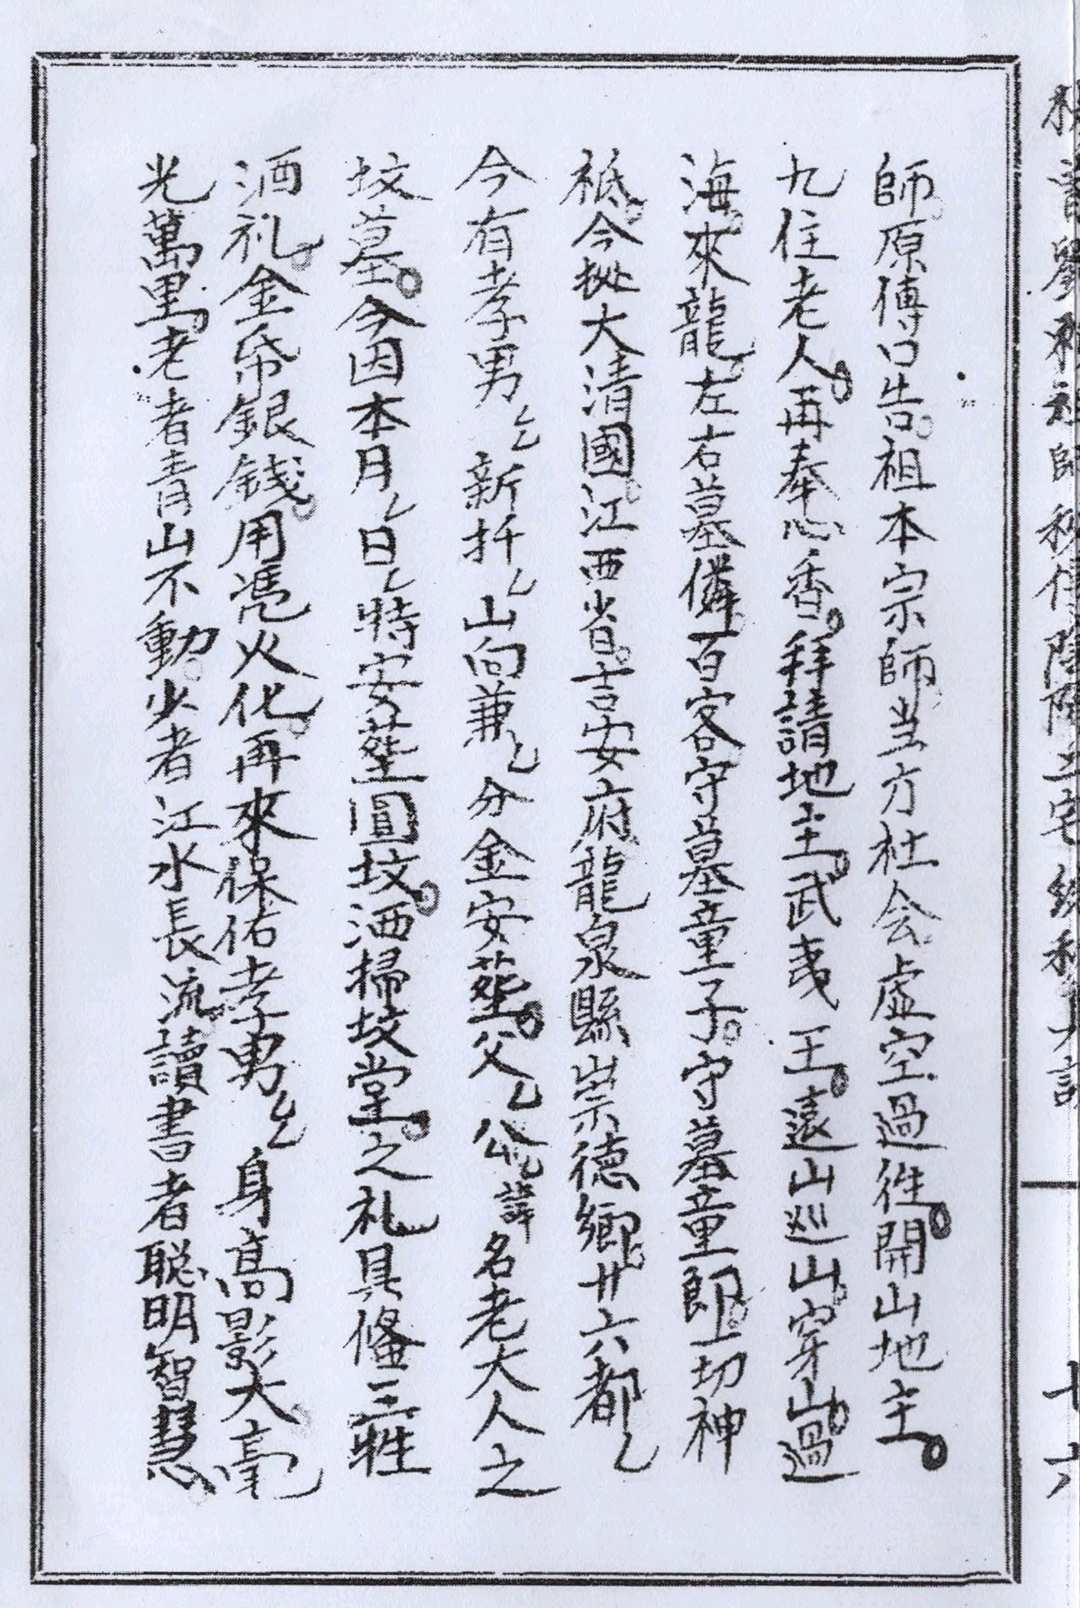 師原傳口告。祖本宗師当方社会虛空過徃。開山地主。
九住老人。再奉心香。拜請地主。武夷王。遠山巡山。穿山。過
海。來龍。左右墓僯。百客守墓童子。守墓童郎。一切神
祗。今扵大清國。江西省。吉安府龍泉縣崇德鄉。廿六都乙
今有孝男乙新扦乙山向兼乙分金安𦵏。父乙公乙諱名老大人之
坟墓。今因本月乙日乙特安𦵏圓坟。洒掃坟堂。之礼具俻三牲
洒礼。金帋銀錢。用凴火化。再來保佑孝男乙身高影大。毫
光萬里。老者青山不動。少者江水長流。讀書者聪明智慧。
七六